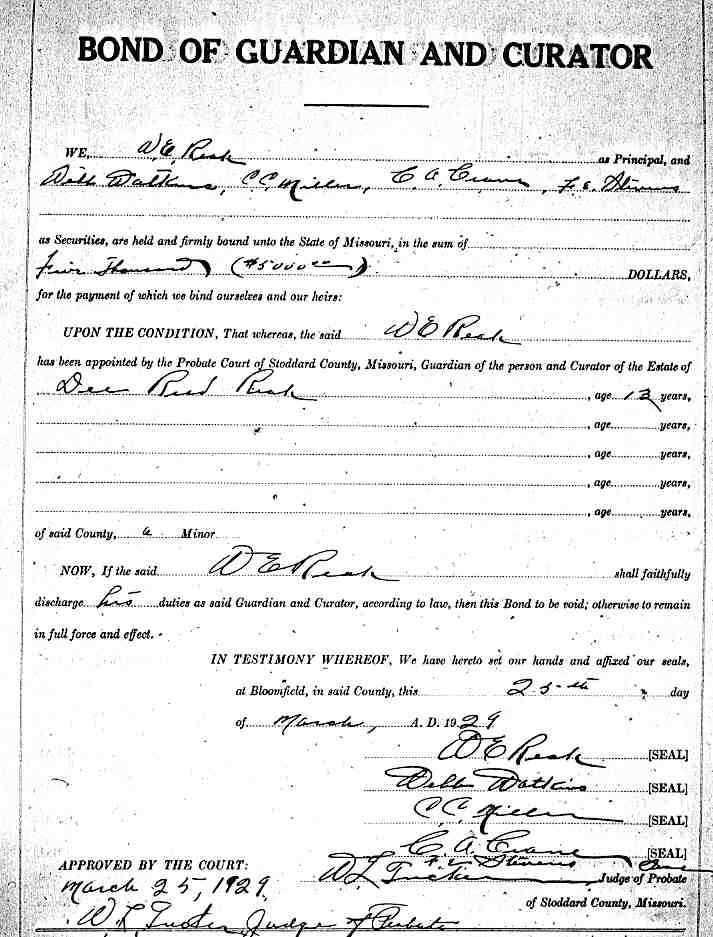 BOND OF GUARDIAN AND CURATOR
WE, W. E. Resk as Principal, and
Webb Watkins, C C Miller, C A Crane, F. E. Stevens
as Securities, are held and firmly bound unto the State of Missouri, in the sum of
Five Thousand ($5000 00) DOLLARS,
for the payment of which we bind ourselves and our heirs:
UPON THE CONDITION, That whereas, the said W E Resk
has been appointed by the Probate Court of Stoddard County, Missouri, Guardian of the person and Curator of the Estate of
Dee Reed Resk, age 13 years,
, age years,
, age years,
, age years,
, age years,
of said County, a Minor
NOW, If the said W E Resk shall faithfully
discharge his duties as said Guardian and Curator, according to law, then this Bond to be void; otherwise to remain
in full force and effect.
IN TESTIMONY WHEREOF, We have hereto set our hands and affixed our seals,
at Bloomfield, in said County, this 25th day
of March, A. D. 1929
W E Resk [SEAL]
Webb Watkins [SEAL]
C C Miller [SEAL]
C A Crane [SEAL]
F E Stevens
APPROVED BY THE COURT: W L Tucker Judge of Probate
March 25, 1929. of Stoddard County, Missouri.
W L Tucker Judge of Probate